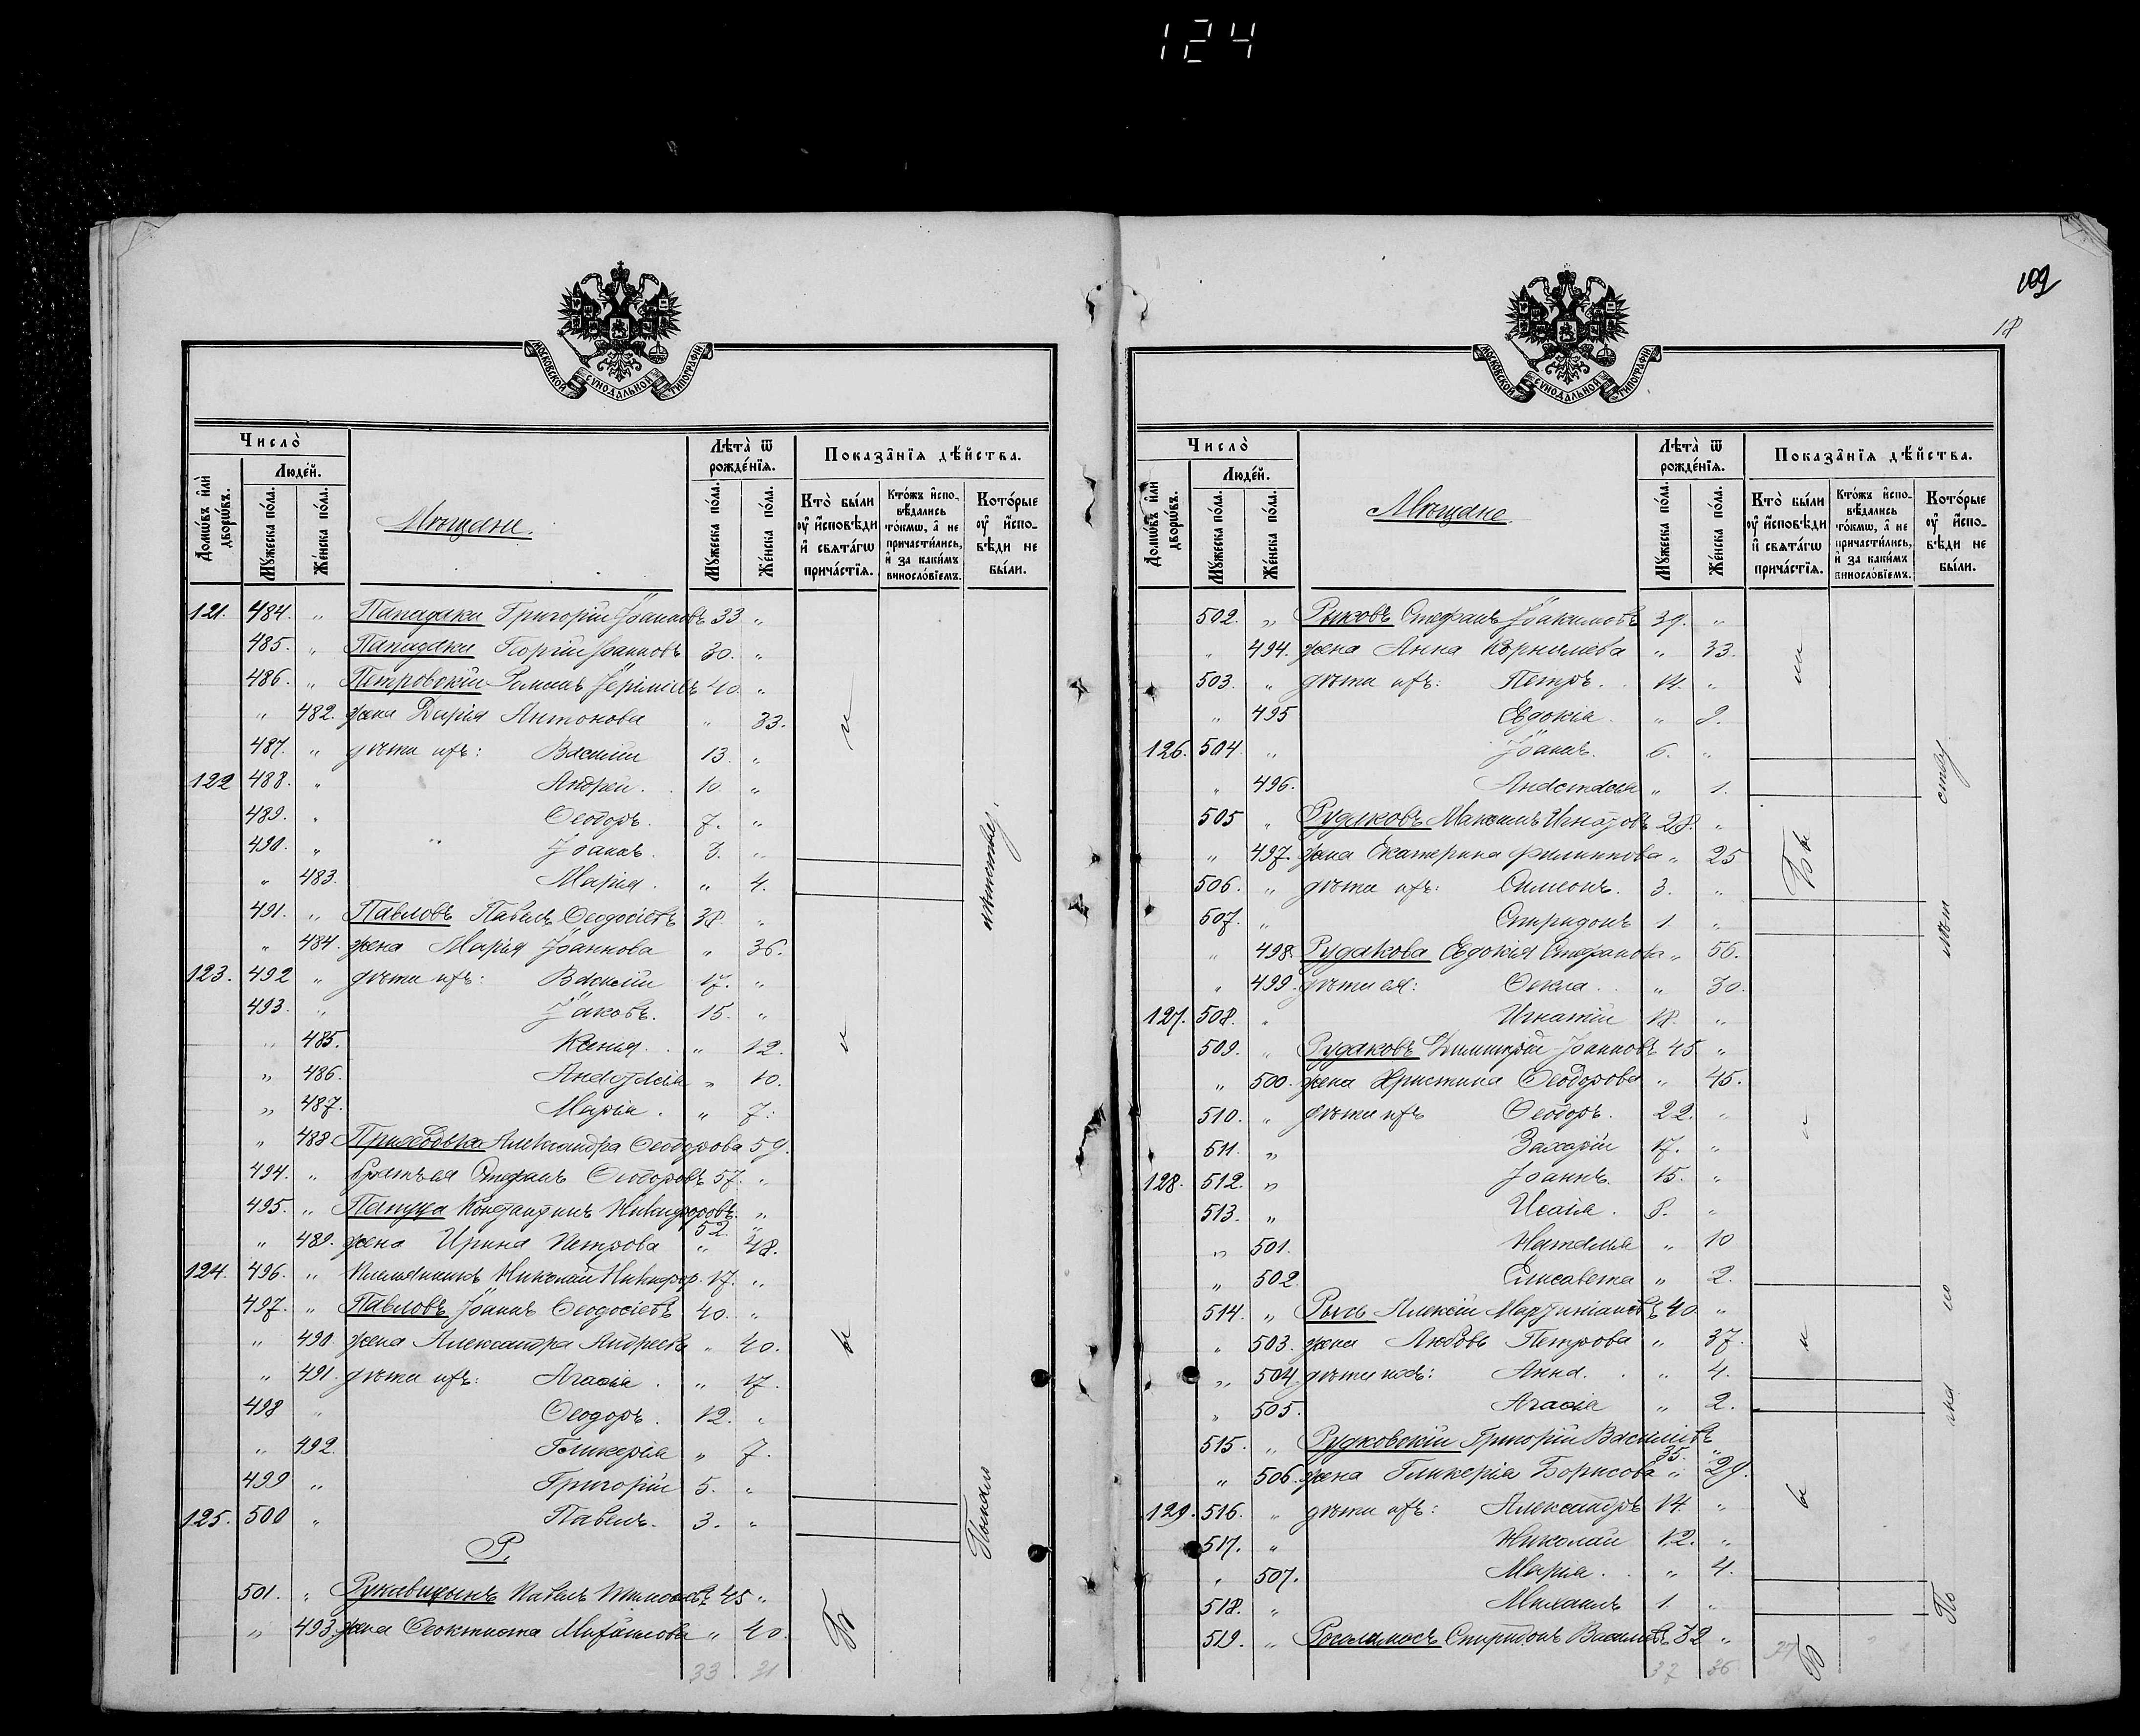 124
МОСКОВСКОЙ СУНОДАЛЬНОЙ ТИПОГРАФІИ
Число̀
Люде́й.
Домѡ́въ и҆лѝ дворѡ́въ.
Мꙋ́жеска по́ла.
Же́нска по́ла.
Мѣщане.
Лѣта̀ ѿ рожде́нїя.
Мꙋ́жеска по́ла.
Же́нска по́ла.
Показа̂нїя дѣ́йства.
Кто̀ бы́ли ᲂу҆ и҆сповѣ́ди и҆ свята́гѡ прича́стїя.
Кто́жъ и҆спо-вѣ́дались то́кмѡ, а҆ не причасти́лись, и҆ за каки́мъ винослові́емъ.
Кото́рые ᲂу҆ и҆спо-вѣ́ди не бы́ли.
121. 484. „ Пападаки Григорій Іоанновъ 33 „
485. „ Пападаки Георгій Іоанновъ 30. „
486. „ Петровскій Іереміевъ 40 „
„ 482. жена Дарія Антонова „ 33.
487. „ дѣти ихъ: Василій 13. „
122 488. „ Андрей. 10 „
489. „ Ѳеодоръ. 7. „
490. „ „ Іоаннъ. 3. „
„ 483. Марія. „ 4.
491. „ Павловъ Павелъ Ѳеодосіевъ 38. „
„ 484. жена Марія Іоаннова „ 36.
123. 492 „ дѣти ихъ: Василій 17. „
493. „ Іаковъ. 15. „
„ 485. Ксенія. „ 12.
„ 486. Анастасія „ 10.
„ 487. Марія. „ 7.
„ 488 Александра Ѳеодорова 59.
494. „ братъ ея Стефанъ Ѳеодоровъ 57. „
495. „ Константинъ Никифоровъ. 52. „
„ 489. жена Ирина Петрова „ 48.
124. 496. „ племянникъ Николай Никифор. 17. „
497. „ Павловъ Іоаннъ Ѳеодосіевъ 40. „
„ 490. жена Александра Андреева „ 40.
„ 491. дѣти ихъ: Агаѳія. „ 17.
498 „ Ѳеодоръ. 12. „
„ 492. Гликерія „ 7.
499 „ Григорій 5. „
125. 500 „ Павелъ. 3. „
Р.
501. „ Рукавицынъ Павелъ 45 „
„ 493. жена Ѳеоктиста Михайлова „ 40.
33 31
Бы
ли
Поименно
102
18
МОСКОВСКОЙ СУНОДАЛЬНОЙ ТИПОГРАФІИ
Число̀
Люде́й.
Домѡ́въ и҆лѝ дворѡ́въ.
Мꙋ́жеска по́ла.
Же́нска по́ла.
Мѣщане.
Лѣта̀ ѿ рожде́нїя.
Мꙋ́жеска по́ла.
Же́нска по́ла.
Показа̂нїя дѣ́йства.
Кто̀ бы́ли ᲂу҆ и҆сповѣ́ди и҆ свята́гѡ прича́стїя.
Кто́жъ и҆спо-вѣ́дались то́кмѡ, а҆ не причасти́лись, и҆ за каки́мъ винослові́емъ.
Кото́рые ᲂу҆ и҆спо-вѣ́ди не бы́ли.
502. „ Рыковъ Стефанъ Іоакимовъ 39. „
„ 494. жена Анна Корнилева „ 33.
503. „ дѣти ихъ: Петръ. 14. „
„ 495 Евдокія. „ 9.
126. 504. „ Іоаннъ. 6. „
„ 496. Анастасія „ 1.
505 „ Рудаковъ Максимъ Игнатовъ 28. „
„ 497. жена Екатерина Филиппова „ 25
506. „ дѣти ихъ: Симеонъ. 3. „
507. „ Спиридонъ 1. „
„ 498. Рудакова Евдокія Стефанова „ 56.
„ 499. дѣти ея: Ѳекла. „ 30.
127. 508. „ Игнатій 18. „
509. „ Рудаковъ Димитрій Іоанновъ 45 „
„ 500. жена Христина Ѳеодорова „ 45.
510. „ дѣти ихъ Ѳеодоръ. 22. „
511. „ Захарій 17. „
128. 512. „ Іоаннъ. 15. „
513. „ Исаія. 8. „
„ 501. Наталія „ 10
„ 502. Елисавета „ 2.
514. „ Рысь Алексій Мартиніановъ 40 „
„ 503. жена Любовь Петрова „ 37.
„ 504 дѣти ихъ: Анна. „ 4.
„ 505. Агаѳія „ 2.
515. „ Рудковскій Григорій Василіевъ 35. „
„ 506. жена Гликерія Борисова „ 29.
129. 516. „ дѣти ихъ: Александръ 14. „
517. „ Николай 12. „
„ 507. Марія. „ 4.
518. „ Михаилъ 1. „
519. „ Спиридонъ Василіевъ 32 „
37 36
Бы
ли